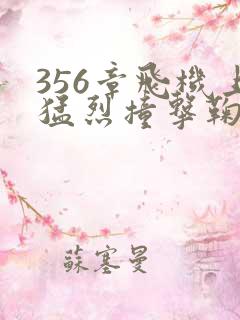 356章飛機上
猛烈撞擊鞠
蘇塞曼